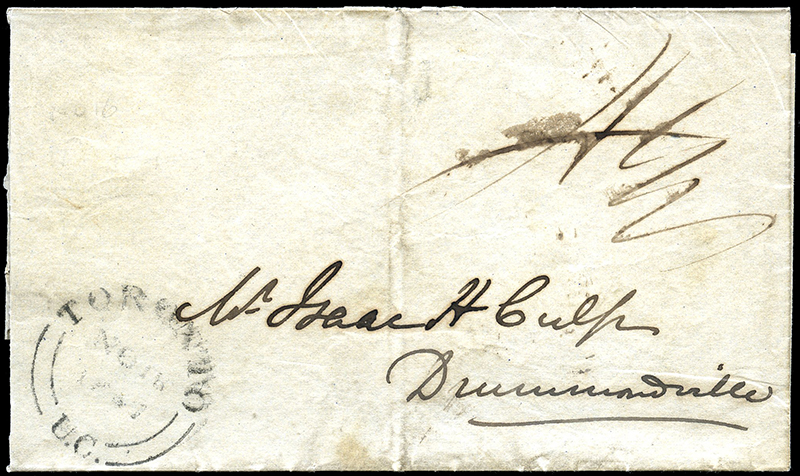 4½
Mr Isaac H Culp
Drummondville
TORONTO
NO 16
U.C.